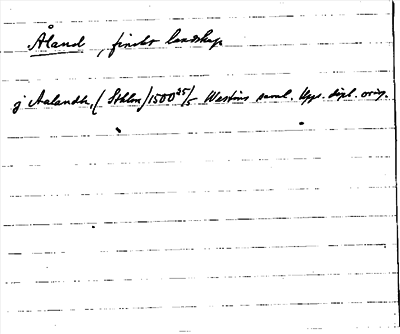 Åland, finskt landskap
j Aalandh, (Sthlm) 1500 25/5 Westins saml. Upps. dipl. orig.